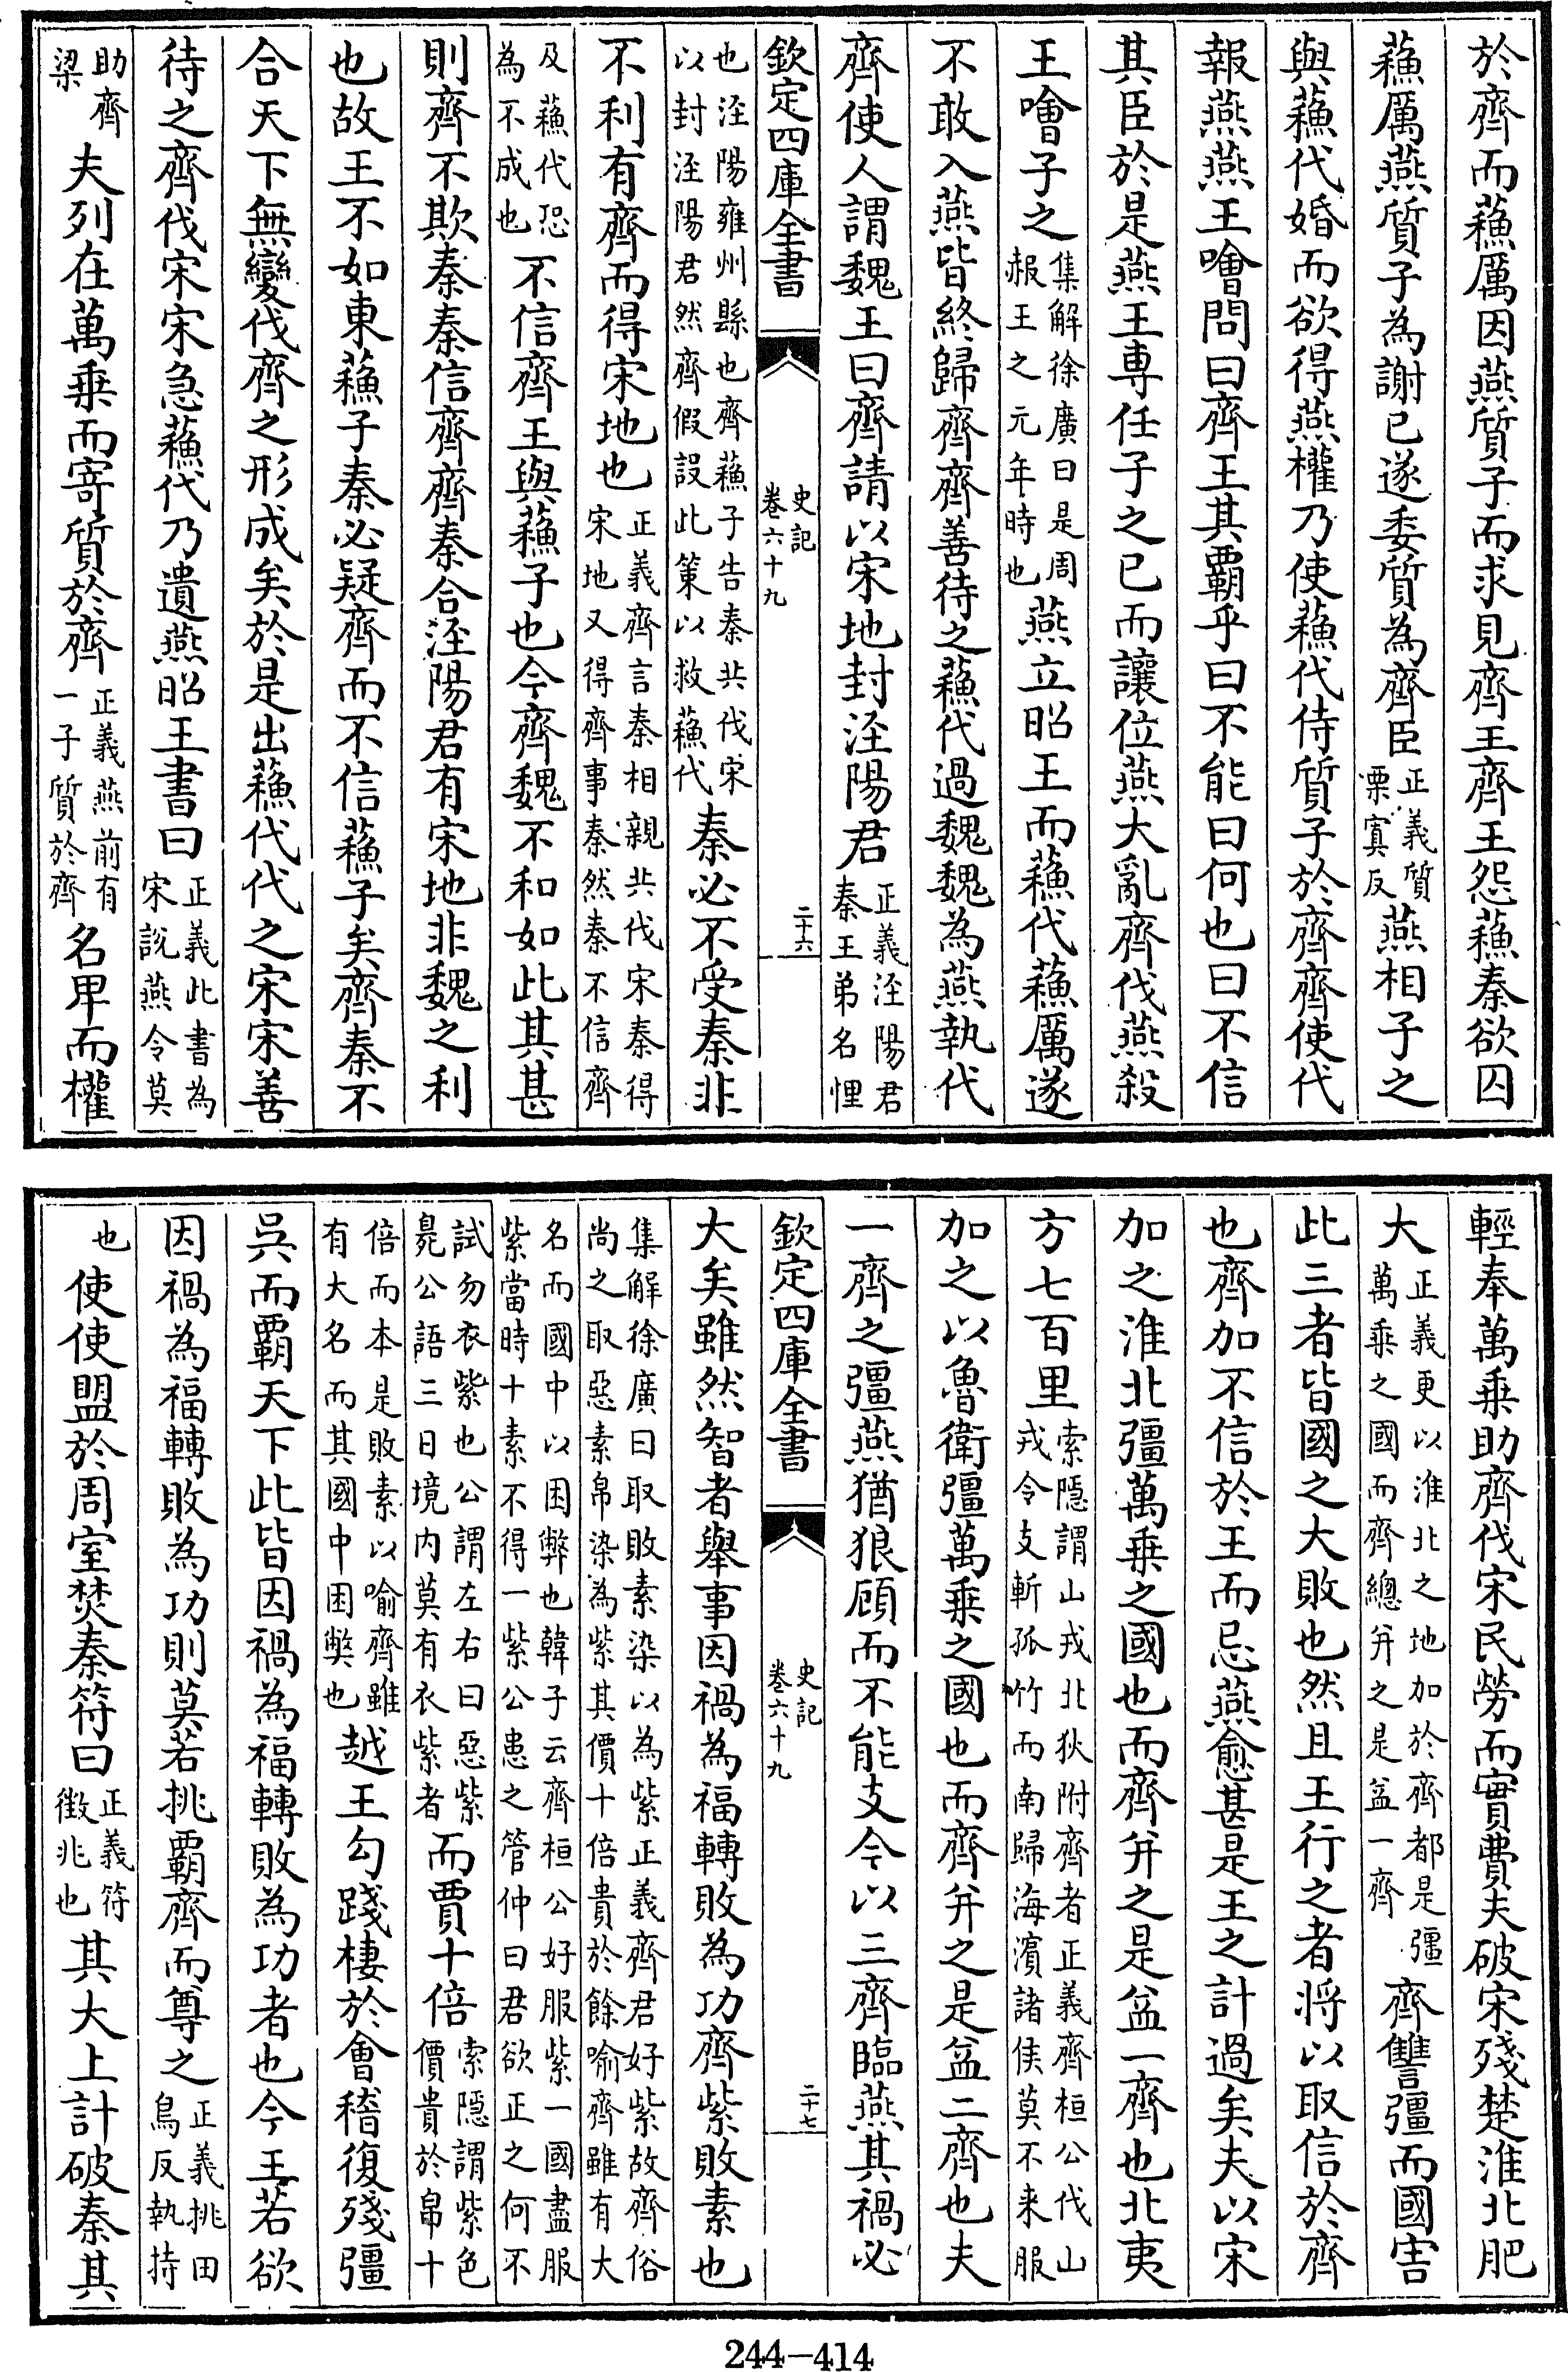 於齊而蘓厲因燕質子而求見齊王齊王怨蘓秦欲囚
蘓厲燕質子為謝已遂委質為齊臣正義質栗寘反燕相子之
與蘓代婚而欲得燕權乃使蘓代侍質子於齊齊使代
報燕燕王噲問曰齊王其覇乎曰不能曰何也曰不信
其臣於是燕王専任子之已而讓位燕大亂齊伐燕殺
王噲子之集解徐廣曰是周赧王之元年時也燕立昭王而蘓代蘓厲遂
不敢入燕皆終歸齊齊善待之蘓代過魏魏為燕執代
齊使人謂魏王曰齊請以宋地封涇陽君正義涇陽君秦王弟名悝
欽定四庫全書 史記卷六十九 二十六
也涇陽雍州縣也齊蘓子告秦共伐宋以封涇陽君然齊假設此策以救蘓代秦必不受秦非
不利有齊而得宋地也正義齊言秦相親共伐宋秦得宋地又得齊事秦然秦不信齊
及蘓代恐為不成也不信齊王與蘓子也今齊魏不和如此其甚
則齊不欺秦秦信齊齊秦合涇陽君有宋地非魏之利
也故王不如東蘓子秦必疑齊而不信蘓子矣齊秦不
合天下無變伐齊之形成矣於是出蘓代代之宋宋善
待之齊伐宋宋急蘓代乃遺燕昭王書曰正義此書為宋說燕令莫
助齊梁夫列在萬乗而寄質於齊正義燕前有一子質於齊名卑而權
輕奉萬乗助齊伐宋民勞而實費夫破宋殘楚淮北肥
大正義更以淮北之地加於齊都是彊萬乗之國而齊總并之是益一齊齊讐彊而國害
此三者皆國之大敗也然且王行之者将以取信於齊
也齊加不信於王而忌燕愈甚是王之計過矣夫以宋
加之淮北彊萬乗之國也而齊并之是益一齊也北夷
方七百里索隠謂山戎北狄附齊者正義齊桓公伐山戎令支斬孤竹而南歸海濵諸侯莫不来服
加之以魯衛彊萬乗之國也而齊并之是益二齊也夫
一齊之彊燕猶狼顧而不能支今以三齊臨燕其禍必
欽定四庫全書 史記卷六十九 二十七
大矣雖然智者舉事因禍為福轉敗為功齊紫敗素也
集解徐廣曰取敗素染以為紫正義齊君好紫故齊俗尚之取惡素帛染為紫其價十倍貴於餘喻齊雖有大
名而國中以困弊也韓子云齊桓公好服紫一國盡服紫當時十素不得一紫公患之管仲曰君欲正之何不
試勿衣紫也公謂左右曰惡紫臭公語三日境内莫有衣紫者而賈十倍索隠謂紫色價貴於帛十
倍而本是敗素以喻齊雖有大名而其國中困弊也越王勾踐棲於會稽復殘彊
吳而覇天下此皆因禍為福轉敗為功者也今王若欲
因禍為福轉敗為功則莫若挑覇齊而尊之正義挑田鳥反執持
也使使盟於周室焚秦符曰正義符徵兆也其大上計破秦其
244-414